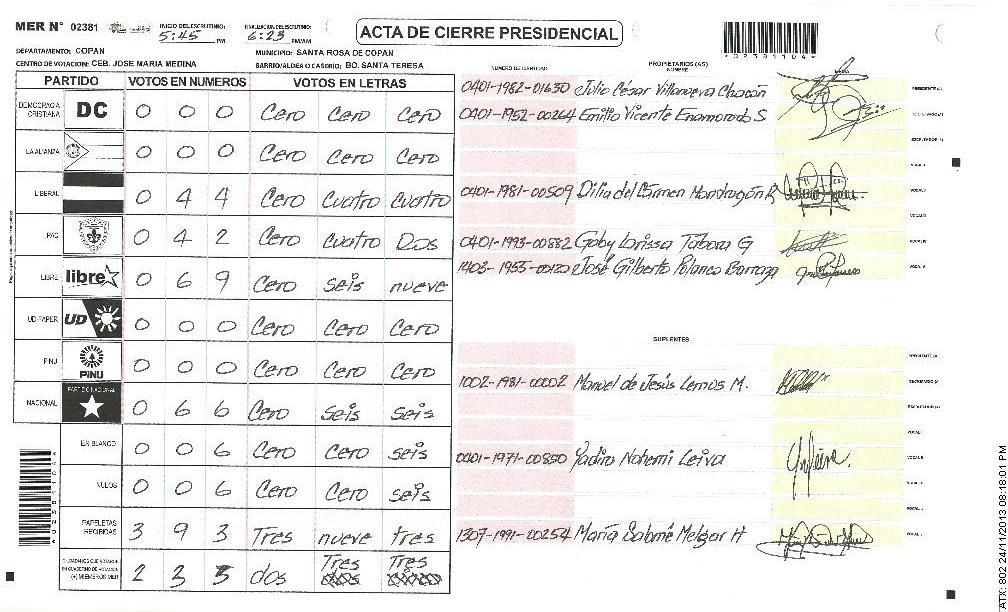 MER N° 02381
INICIO DEL ESCRUTINIO: 5:45 PM
FINALIZACION ESCRUTINIO: 6:23 PM/AM
ACTA DE CIERRE PRESIDENCIAL
DEPARTAMENTO: COPAN
MUNICIPIO: SANTA ROSA DE COPAN
CENTRO DE VOTACION: CEB. JOSE MARIA MEDINA
BARRIO/ALDEA O CASERIO: BO. SANTA TERESA
PARTIDO VOTOS EN NUMEROS VOTOS EN LETRAS
DEMOCRACIA CRISTIANA DC 0 0 0 Cero Cero Cero
LA ALIANZA 0 0 0 Cero Cero Cero
LIBERAL 0 4 4 Cero Cuatro Cuatro
PAC 0 4 2 Cero Cuatro Dos
LIBRE libre 0 6 9 Cero Seis nueve
UD-FAPER UD 0 0 0 Cero Cero Cero
PINU PINU 0 0 0 Cero Cero Cero
NACIONAL PARTIDO NACIONAL 0 6 6 Cero Seis Seis
EN BLANCO 0 0 6 Cero Cero seis
NULOS 0 0 6 Cero Cero seis
PAPELETAS RECIBIDAS 3 9 3 Tres nueve tres
(+) MIEMBROS MER 2 3 3 dos Tres Tres
NUMERO DE IDENTIDAD
PROPIETARIOS (AS)
NOMBRE
FIRMA
0401-1982-01630 Julio César Villanueva Chacón PRESIDENTE (A)
0401-1952-00264 Emilio Vicente Enamorado S SECRETARIO (A)
ESCRUTADOR (A)
VOCAL I
0401-1981-00509 Dilia del Carmen Mondragón R VOCAL II
VOCAL III
0401-1993-00882 Gaby Larissa Tabora G VOCAL IV
1403-1955-00120 José Gilberto Polanco Barraza VOCAL V
SUPLENTES
PRESIDENTE (A)
1002-1981-00002 Manuel de Jesús Lemus M. SECRETARIO (A)
ESCRUTADOR (A)
VOCAL I
0401-1971-00850 Yadira Nohemi Leiva VOCAL II
1307-1991-00254 María Salomé Melgar H VOCAL V
02381104
A02381104
ATX:802 24/11/2013 08:18:01 PM